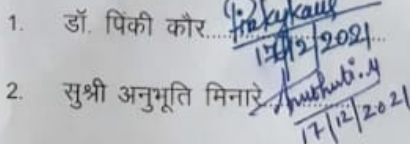 1. डॉ. पिंकी कौर.... Pinkykaur
17/12/2021...
2. सुश्री अनुभूति मिनारे Anubhuti.M
17/12/2021